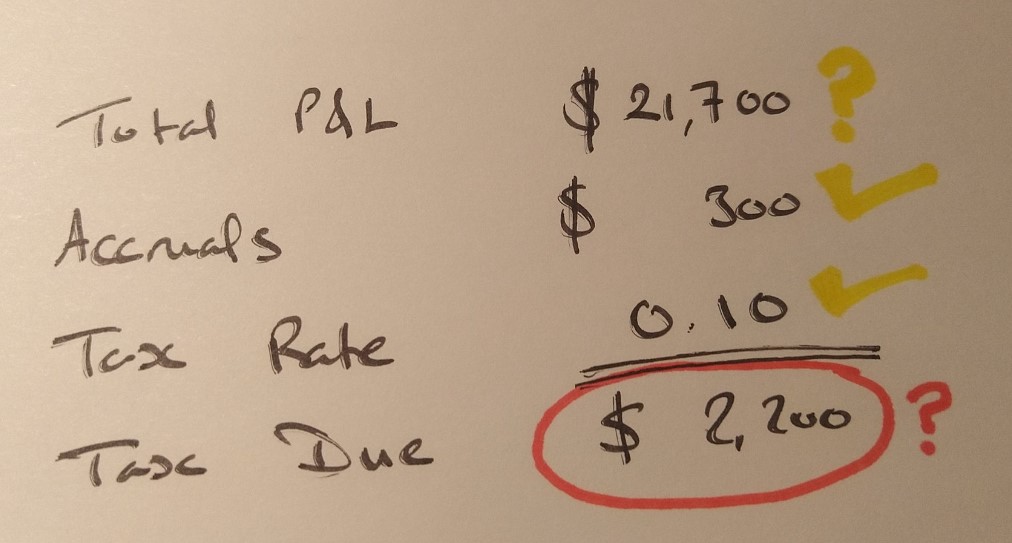 Total P&L $ 21,700 ?
Accruals $ 300
Tax Rate 0.10
Tax Due $ 2,200 ?